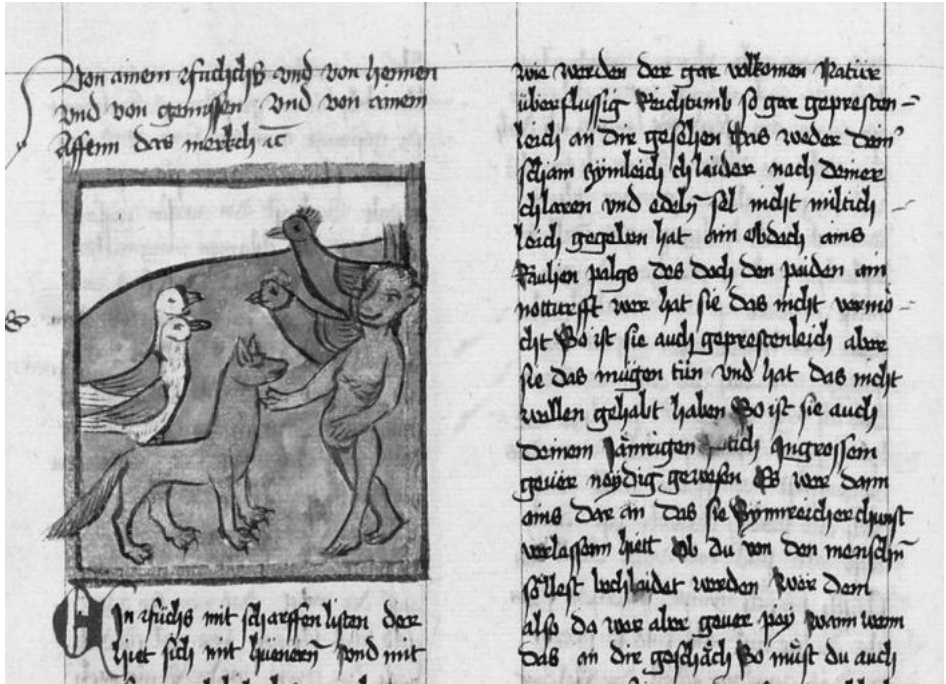 Von ainem Fuchsß vnd von hennen
vnd von gennssen vnd von ainem
Affenn das merkch
Ein Füchs mit scharffen listen der
hiet sich mit hüenern vnd mit
wie werden der gar volkomen Natur
überflussig Reichtumb so gar gepresten-
leich an dir gesehen Das weder dein
scham Synnleich chlaider nach deiner
chlaren vnd edeln sel nicht miltich
leich gegeben hat ain Obdach ains
Faulien palgs des doch den paiden ain
notturfft wer hat sie das nicht vermö-
cht So ist sie auch geprestenleich aber
sie das mügen tün vnd hat das nicht
wollen gehabt haben So ist sie auch
deinem Jämrigen Ingrossem
geuër neydig gewesen Es wer dann
ains dar an das sie Synnreicher chunst
verlassenn hiett Ob du von den menschen
söllest bechlaidet werden Wer dem
also da wer aber geuer pay Wann wenn
das an dir geschäch So müst du auch